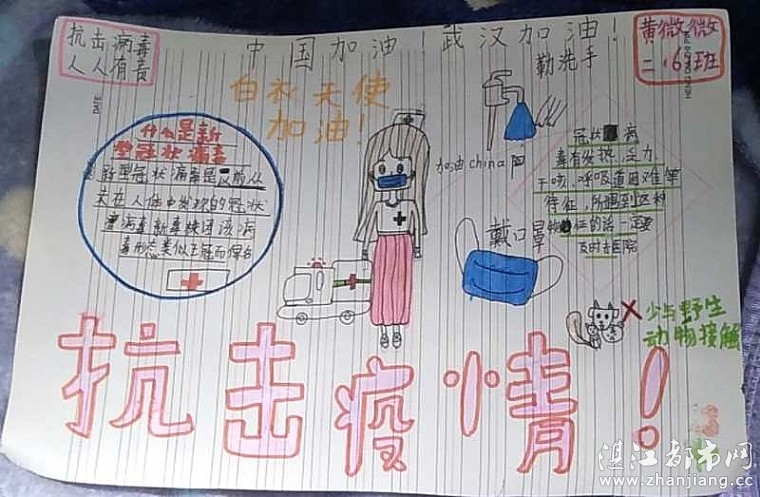 抗击病毒
人人有责
中国加油！武汉加油！
黄微微
二.6班
勤洗手
白衣天使
加油！
什么是新
型冠状病毒
新型冠状病毒是以前从
未在人体中发现的冠状
病毒新毒株因该病
毒形态类似王冠而得名
加油china 阿
冠状 病
毒有发热,乏力
干咳,呼吸道困难等
特征,所遇到这种
征的话一定要
及时去医院
戴口罩
少与野生
动物接触
抗击疫情！
湛江都市网
www.zhanjiang.cc